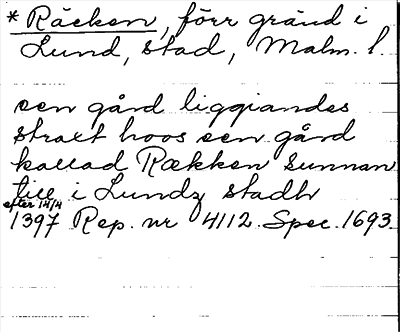 * Räcken, förr gränd i
Lund, stad, Malm. l.
een gård liggiandes
straxt hoos een gård
kallad Rækken sunnan
till i Lundz stadh
efter 14/4
1397 Rep. nr 4112. Spec. 1693.